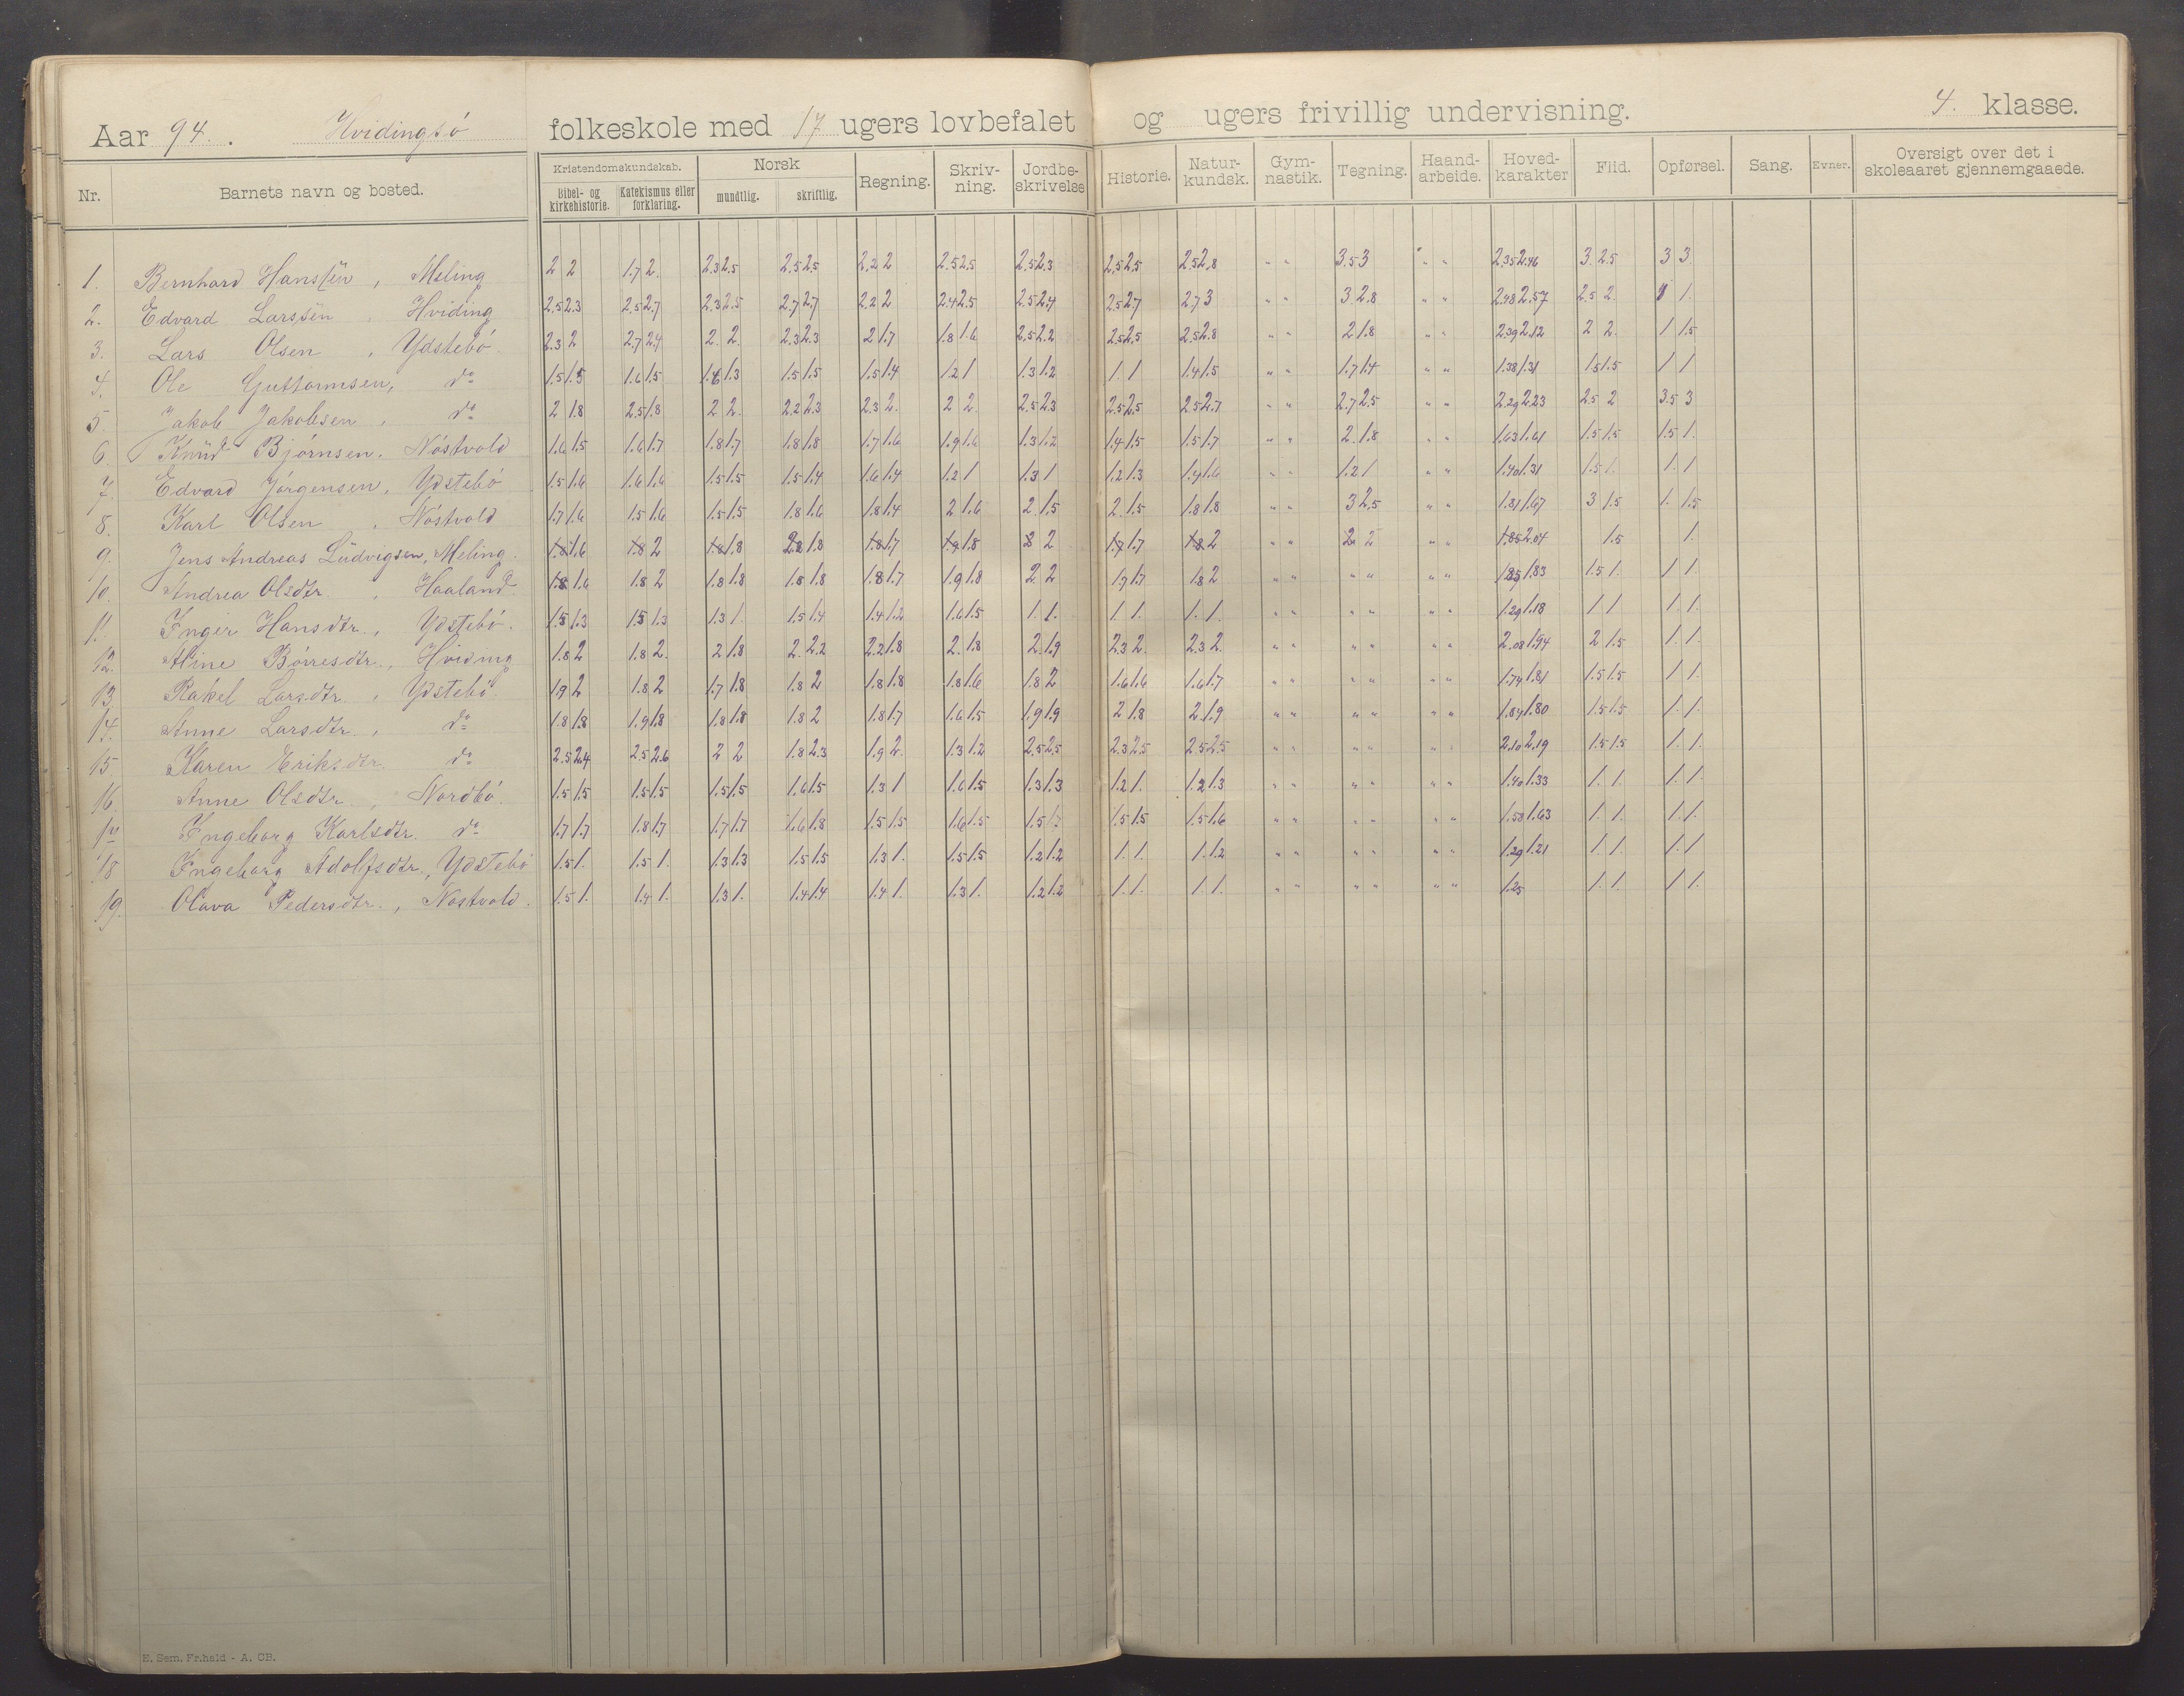 Aar 94. Hvidingsö folkeskole med 17 ugers lovbefalet og ugers frivillig undervisning. 4. klasse.
Nr. Barnets navn og bosted. Kristendomskundskab. Bibel- og kirkehistorie. Katekismus eller forklaring. Norsk mundtlig. skriftlig. Regning. Skriv-ning. Jordbe-skrivelse Historie. Natur-kundsk. Gym-nastik. Tegning. Haand-arbeide. Hoved-karakter Flid. Opførsel. Sang. Evner. Oversigt over det i skoleaaret gjennemgaaede.
1. Bernhard Hansen, Meling 2 2 1.7 2. 2.3 2.5 2.5 2.5 2.2 2 2.5 2.5 2.5 2.3 2.5 2.5 2.5 2.8 " " 3.5 3 " " 2.35 2.46 3. 2.5 3 3
2. Edvard Larsen, Hviding 2.5 2.3 2.5 2.7 2.3 2.5 2.7 2.7 2.2 2 2.4 2.5 2.5 2.4 2.5 2.7 2.7 3 " " 3 2.8 " " 2.48 2.57 2.5 2. 1 1.
3. Lars Olsen, Ydstebö 2.3 2 2.7 2.4 2. 2. 2.3 2.3 2 1.7 1.8 1.6 2.5 2.2 2.5 2.5 2.5 2.8 " " 2 1.8 " " 2.39 2.12 2 2. 1 1.5
4. Ole Guttormsen, do 1.5 1.5 1.6 1.5 1.6 1.3 1.5 1.5 1.5 1.4 1.2 1 1.3 1.2 1. 1 1.4 1.5 " " 1.7 1.4 " " 1.38 1.31 1.5 1.5 1 1
5. Jakob Jakobsen, do 2 1.8 2.5 1.8 2 2. 2.2 2.3 2.3 2. 2 2. 2.5 2.3 2.5 2.5 2.5 2.7 " " 2.7 2.5 " " 2.29 2.23 2.5 2 3.5 3
6. Knud Björnsen, Nöstvold 1.6 1.5 1.6 1.7 1.8 1.7 1.8 1.8 1.7 1.6 1.9 1.6 1.3 1.2 1.4 1.5 1.5 1.7 " " 2. 1.8 " " 1.63 1.61 1.5 1.5 1.5 1.
7. Edvard Jörgensen, Ydstebö 1.5 1.6 1.6 1.6 1.5 1.5 1.5 1.4 1.6 1.4 1.2 1 1.3 1 1.2 1.3 1.4 1.6 " " 1.2 1 " " 1.40 1.31 1.5 1. 1. 1
8. Karl Olsen, Nöstvold 1.7 1.6 1.5 1.6 1.5 1.5 1.8 1.6 1.8 1.4 2 1.6 2 1.5 2. 1.5 1.8 1.8 " " 3 2.5 " " 1.81 1.67 3 1.5 1. 1.5
9. Jens Andreas Ludvigsen, Meling. 1.8 1.6 1.8 2 1.8 1.8 2.2 1.8 1.8 1.7 1.9 1.8 2 2 1.7 1.7 1.8 2 " " 2 2 " " 1.85 2.04 1.5 1.
10. Andrea Olsdtr., Haaland 1.8 1.6 1.8 2 1.8 1.8 1.8 1.8 1.8 1.7 1.9 1.8 2 2 1.7 1.7 1.8 2 " " " " " " 1.85 1.83 1.5 1. 1 1.
11. Inger Hansdtr., Ydstebö. 1.5 1.3 1.5 1.3 1.3 1. 1.5 1.4 1.4 1.2 1.6 1.5 1. 1. 1. 1. 1. 1. " " " " " " 1.29 1.18 1 1 1. 1.
12. Aline Börresdtr., Hviding 1.8 2 1.8 2. 2 1.8 2. 2.2 2.2 1.8 2. 1.8 2. 1.9 2.3 2. 2.3 2. " " " " " " 2.08 1.94 2 1.5 1. 1.
13. Rakel Larsdtr., Ydstebö. 1.9 2 1.8 2 1.7 1.8 1.8 2 1.8 1.8 1.8 1.6 1.8 2 1.6 1.6 1.6 1.7 " " " " " " 1.74 1.81 1.5 1.5 1 1.
14. Anne Larsdtr., do 1.8 1.8 1.9 1.8 1.8 1.8 1.8 2 1.8 1.7 1.6 1.5 1.9 1.9 2 1.8 2 1.9 " " " " " " 1.84 1.80 1.5 1.5 1. 1.
15. Karen Eriksdtr. do 2.5 2.4 2.5 2.6 2 2 1.8 2.3 1.9 2. 1.3 1.2 2.5 2.5 2.3 2.5 2.5 2.5 " " " " " " 2.10 2.19 1.5 1.5 1. 1.
16. Anne Olsdtr., Nordbö. 1.5 1.5 1.5 1.5 1.5 1.5 1.6 1.5 1.3 1 1.6 1.5 1.3 1.3 1.2 1. 1.2 1.3 " " " " " " 1.40 1.33 1. 1. 1. 1.
17 Ingeborg Karlsdtr. do 1.7 1.7 1.8 1.7 1.7 1.7 1.6 1.8 1.5 1.5 1.6 1.5 1.5 1.7 1.5 1.5 1.5 1.6 " " " " " " 1.58 1.63 1. 1. 1. 1.
18 Ingeborg Adolfsdtr., Ydstebö 1.5 1. 1.5 1. 1.3 1.3 1.5 1.5 1.3 1. 1.5 1.5 1.2 1.2 1. 1. 1. 1.2 " " " " " " 1.29 1.21 1. 1. 1. 1
19. Olava Pedersdtr., Nöstvold. 1.5 1. 1.4 1. 1.3 1. 1.4 1.4 1.4 1. 1.3 1. 1.2 1.2 1. 1. 1. 1. " " " " " " 1.25 1. 1. 1 1.
E. Sem. Fr.hald - A. CB.